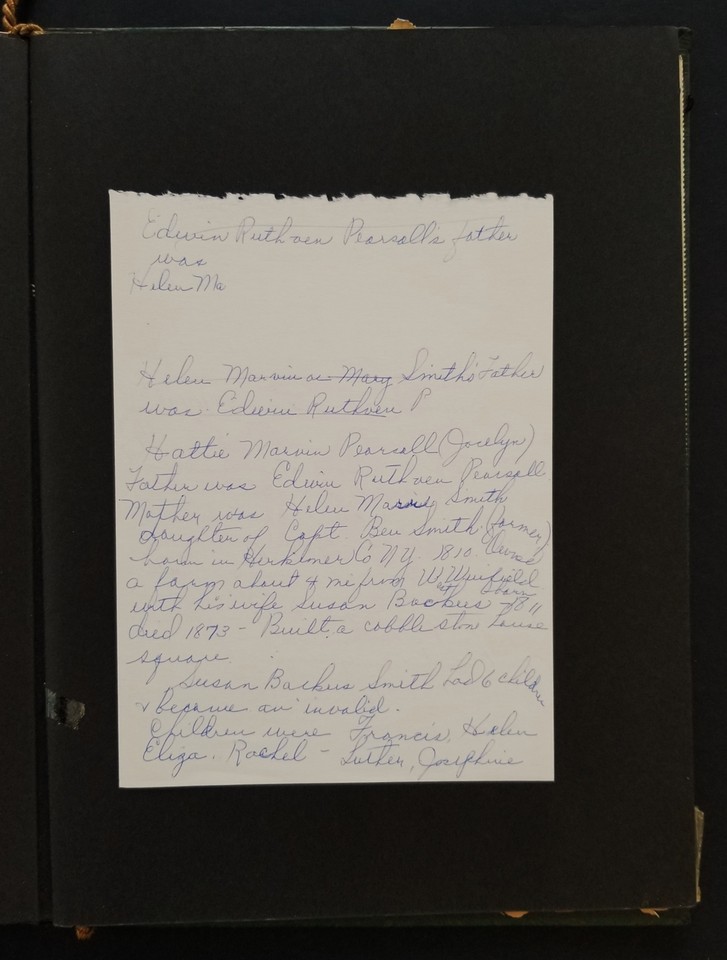 Edwin Ruthven Pearsall's father
was
Helen Ma
Helen Marvin or Mary Smith's Father
was Edwin Ruthven P
Hattie Marvin Pearsall (Jocelyn)
Father was Edwin Ruthven Pearsall
Mother was Helen Smith
daughter of Capt. Ben Smith (farmer)
born in Herkimer Co NY. 1810. Owned
a farm about 4 mi from W. Winfield
with his wife Susan Backus born 1811
died 1873 - Built a cobble stone house
square.
Susan Backus Smith had 6 children
& became an invalid.
Children were Francis, Helen
Eliza. Rachel - Luther, Josephine